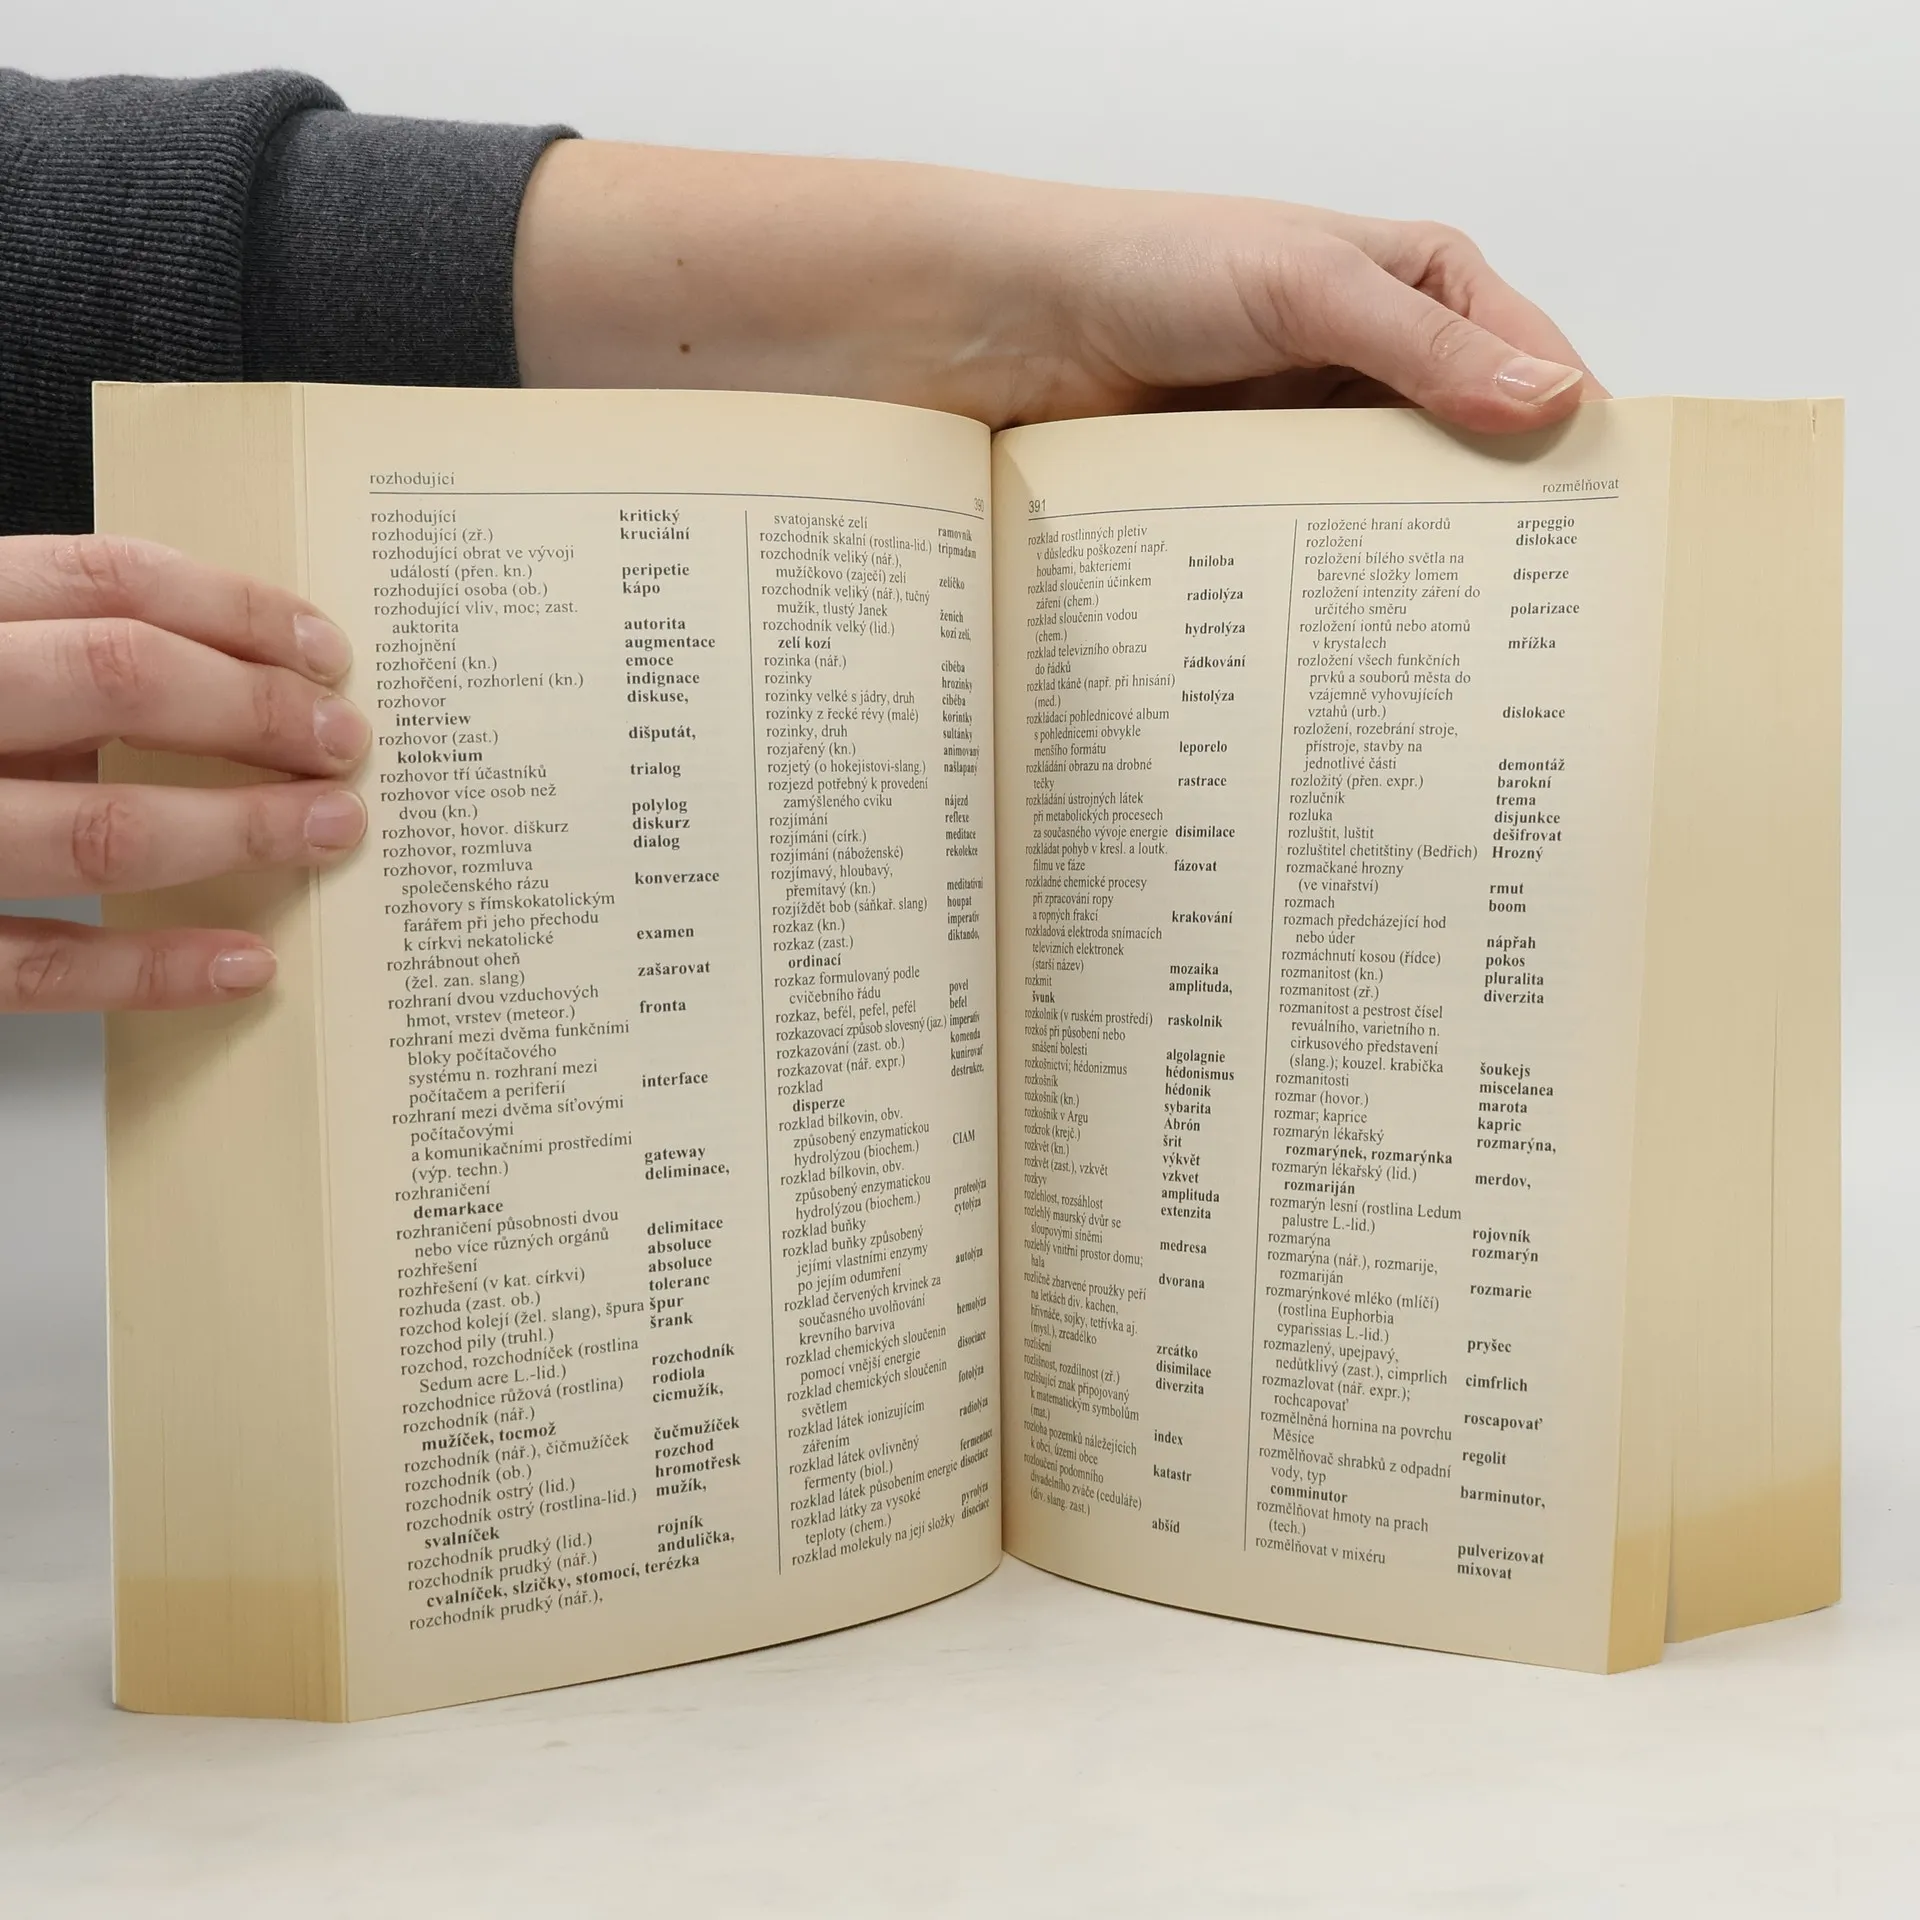 rozhodující
390
rozhodující kritický
rozhodující (zř.) kruciální
rozhodující obrat ve vývoji
událostí (přen. kn.) peripetie
rozhodující osoba (ob.) kápo
rozhodující vliv, moc; zast.
auktorita autorita
rozhojnění augmentace
rozhořčení (kn.) emoce
rozhořčení, rozhorlení (kn.) indignace
rozhovor diskuse,
interview
rozhovor (zast.) dišputát,
kolokvium
rozhovor tří účastníků trialog
rozhovor více osob než
dvou (kn.) polylog
rozhovor, hovor. diškurz diskurz
rozhovor, rozmluva dialog
rozhovor, rozmluva
společenského rázu konverzace
rozhovory s římskokatolickým
farářem při jeho přechodu
k církvi nekatolické examen
rozhrábnout oheň
(žel. zan. slang) zašarovat
rozhraní dvou vzduchových
hmot, vrstev (meteor.) fronta
rozhraní mezi dvěma funkčními
bloky počítačového
systému n. rozhraní mezi
počítačem a periferií interface
rozhraní mezi dvěma síťovými
počítačovými
a komunikačními prostředími
(výp. techn.) gateway
rozhraničení deliminace,
demarkace
rozhraničení působnosti dvou
nebo více různých orgánů delimitace
rozhřešení absoluce
rozhřešení (v kat. církvi) absoluce
rozhuda (zast. ob.) toleranc
rozchod kolejí (žel. slang), špura špur
rozchod pily (truhl.) šrank
rozchod, rozchodníček (rostlina
Sedum acre L.-lid.) rozchodník
rozchodnice růžová (rostlina) rodiola
rozchodník (nář.) cicmužík,
mužíček, tocmož
rozchodník (nář.), čičmužíček čučmužíček
rozchodník (ob.) rozchod
rozchodník ostrý (lid.) hromotřesk
rozchodník ostrý (rostlina-lid.) mužík,
svalníček
rozchodník prudký (lid.) rojník
rozchodník prudký (nář.) andulička,
cvalníček, slzičky, stomocí, terézka
rozchodník prudký (nář.),
svatojanské zelí ramovník
rozchodník skalní (rostlina-lid.) tripmadam
rozchodník veliký (nář.),
mužíčkovo (zaječí) zelí zelíčko
rozchodník veliký (nář.), tučný
mužík, tlustý Janek ženich
rozchodník velký (lid.) kozí zelí,
zelí kozí
rozinka (nář.) cibéba
rozinky hrozinky
rozinky velké s jádry, druh cibéba
rozinky z řecké révy (malé) korintky
rozinky, druh sultánky
rozjařený (kn.) animovaný
rozjetý (o hokejistovi-slang.) našlapaný
rozjezd potřebný k provedení
zamýšleného cviku nájezd
rozjímání reflexe
rozjímání (círk.) meditace
rozjímání (náboženské) rekolekce
rozjímavý, hloubavý,
přemítavý (kn.) meditativní
rozjíždět bob (sáňkař. slang) houpat
rozkaz (kn.) imperativ
rozkaz (zast.) diktando,
ordinací
rozkaz formulovaný podle
cvičebního řádu povel
rozkaz, befél, pefel, pefél befel
rozkazovací způsob slovesný (jaz.) imperativ
rozkazování (zast. ob.) komenda
rozkazovat (nář. expr.) kunírovať
rozklad destrukce,
disperze
rozklad bílkovin, obv.
způsobený enzymatickou
hydrolýzou (biochem.) CIAM
rozklad bílkovin, obv.
způsobený enzymatickou
hydrolýzou (biochem.) proteolýza
rozklad buňky cytolýza
rozklad buňky způsobený
jejími vlastními enzymy
po jejím odumření autolýza
rozklad červených krvinek za
současného uvolňování
krevního barviva hemolýza
rozklad chemických sloučenin
pomocí vnější energie disociace
rozklad chemických sloučenin
světlem fotolýza
rozklad látek ionizujícím
zářením radiolýza
rozklad látek ovlivněný
fermenty (biol.) fermentace
rozklad látek působením energie disociace
rozklad látky za vysoké
teploty (chem.) pyrolýza
rozklad molekuly na její složky disociace
391
rozmělňovat
rozklad rostlinných pletiv
v důsledku poškození např.
houbami, bakteriemi hniloba
rozklad sloučenin účinkem
záření (chem.) radiolýza
rozklad sloučenin vodou
(chem.) hydrolýza
rozklad televizního obrazu
do řádků řádkování
rozklad tkáně (např. při hnisání)
(med.) histolýza
rozkládací pohlednicové album
s pohlednicemi obvykle
menšího formátu leporelo
rozkládání obrazu na drobné
tečky rastrace
rozkládání ústrojných látek
při metabolických procesech
za současného vývoje energie disimilace
rozkládat pohyb v kresl. a loutk.
filmu ve fáze fázovat
rozkladné chemické procesy
při zpracování ropy
a ropných frakcí krakování
rozkladová elektroda snímacích
televizních elektronek
(starší název) mozaika
rozkmit amplituda,
švunk
rozkolník (v ruském prostředí) raskolnik
rozkoš při působení nebo
snášení bolesti algolagnie
rozkošnictví; hédonizmus hédonismus
rozkošník hédonik
rozkošník (kn.) sybarita
rozkošník v Argu Abrón
rozkrok (krejč.) šrit
rozkvět (kn.) výkvět
rozkvět (zast.), vzkvět vzkvet
rozkyv amplituda
rozlehlost, rozsáhlost extenzita
rozlehlý maurský dvůr se
sloupovými síněmi medresa
rozlehlý vnitřní prostor domu;
hala dvorana
rozličně zbarvené proužky peří
na letkách div. kachen,
hřivnáče, sojky, tetřívka aj.
(mysl.), zrcadélko zrcátko
rozlišení disimilace
rozlišnost, rozdílnost (zř.) diverzita
rozlišující znak připojovaný
k matematickým symbolům
(mat.) index
rozloha pozemků náležejících
k obci, území obce katastr
rozloučení podomního
divadelního zváče (ceduláře)
(div. slang. zast.) abšíd
rozložené hraní akordů arpeggio
rozložení dislokace
rozložení bílého světla na
barevné složky lomem disperze
rozložení intenzity záření do
určitého směru polarizace
rozložení iontů nebo atomů
v krystalech mřížka
rozložení všech funkčních
prvků a souborů města do
vzájemně vyhovujících
vztahů (urb.) dislokace
rozložení, rozebrání stroje,
přístroje, stavby na
jednotlivé části demontáž
rozložitý (přen. expr.) barokní
rozlučník trema
rozluka disjunkce
rozluštit, luštit dešifrovat
rozluštitel chetitštiny (Bedřich) Hrozný
rozmačkané hrozny
(ve vinařství) rmut
rozmach boom
rozmach předcházející hod
nebo úder nápřah
rozmáchnutí kosou (řídce) pokos
rozmanitost (kn.) pluralita
rozmanitost (zř.) diverzita
rozmanitost a pestrost čísel
revuálního, varietního n.
cirkusového představení
(slang.); kouzel. krabička šoukejs
rozmanitosti miscelanea
rozmar (hovor.) marota
rozmar; kaprice kapric
rozmarýn lékařský rozmarýna,
rozmarýnek, rozmarýnka
rozmarýn lékařský (lid.) merdov,
rozmariján
rozmarýn lesní (rostlina Ledum
palustre L.-lid.) rojovník
rozmarýna rozmarýn
rozmarýna (nář.), rozmarije,
rozmariján rozmarie
rozmarýnkové mléko (mlíčí)
(rostlina Euphorbia
cyparissias L.-lid.) pryšec
rozmazlený, upejpavý,
nedůtklivý (zast.), cimprlich cimfrlich
rozmazlovat (nář. expr.);
rochcapovať roscapovať
rozmělněná hornina na povrchu
Měsíce regolit
rozmělňovač shrabků z odpadní
vody, typ barminutor,
comminutor
rozmělňovat hmoty na prach
(tech.) pulverizovat
rozmělňovat v mixéru mixovat